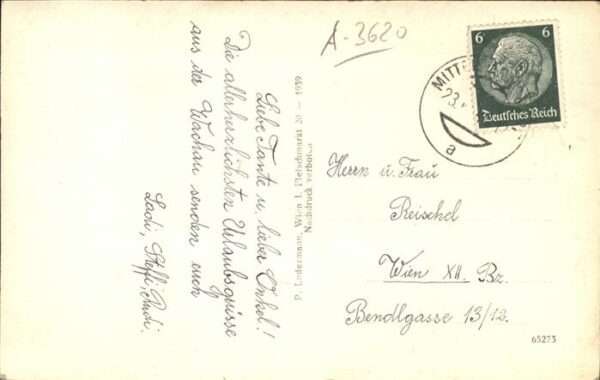 A-3620
6 6
Deutsches Reich
MITT
23.
a
Liebe Tante u. lieber Onkel!
Die allerherzlichsten Urlaubsgrüsse
aus der Wachau senden euch
Ladi, Steffi, Rudi.
P. Ledermann, Wien I, Fleischmarkt 20 — 1939
Nachdruck verboten
Herrn u. Frau
Reischel
Wien XII. Bz.
Bendlgasse 13/12.
65273